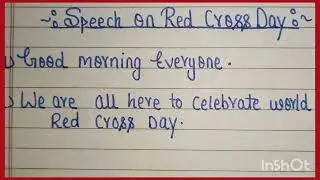 ~:Speech on Red Cross Day:~
Good morning Everyone.
We are all here to celebrate world
Red Cross Day.
InShOt